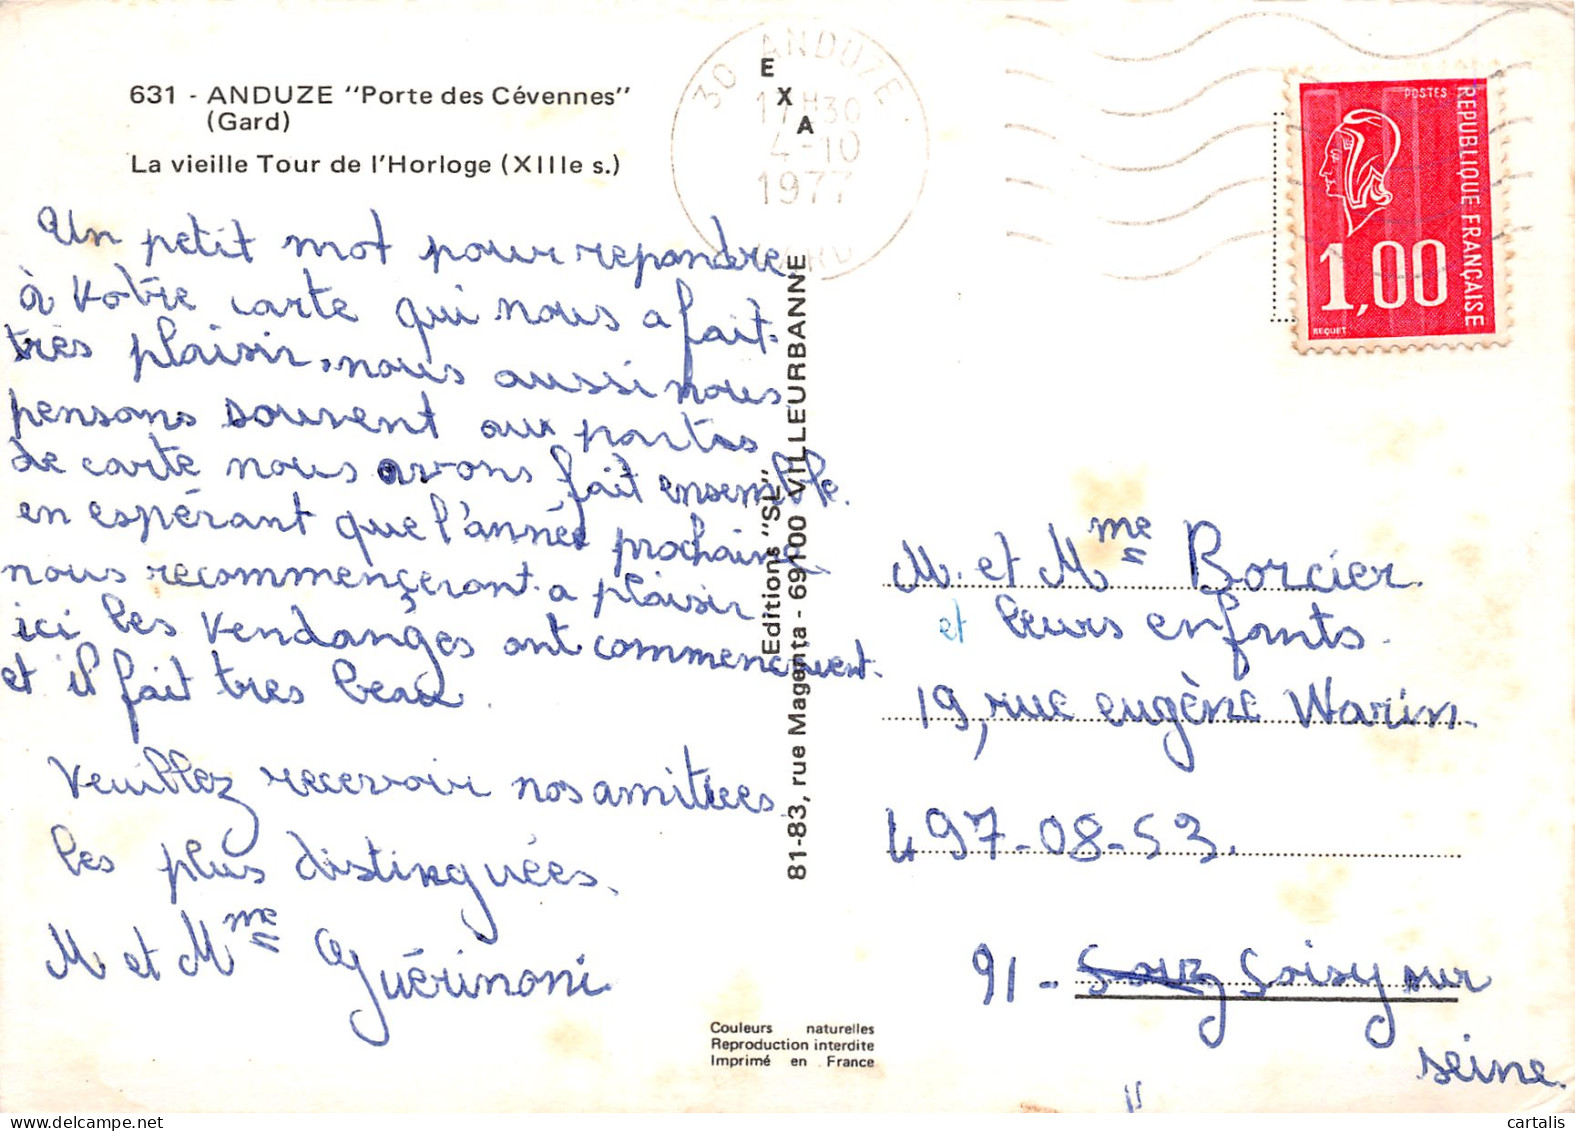 631 - ANDUZE "Porte des Cévennes"
(Gard)
La vieille Tour de l'Horloge (XIIIe s.)
Un petit mot pour repondre
à votre carte qui nous a fait
très plaisir, nous aussi nous
pensons souvent aux partas
de carte nous avons fait ensemble.
en espérant que l'année prochaine
nous recommençeront a plaisir
ici les vendanges ont commencent.
et il fait tres beau.
Veuillez recevoir nos amitiees
les plus distinguées.
M et Mme Guérinoni
30 ANDUZE
17H30
4-10
1977
GARD
EXA
Editions "SL"
81-83, rue Magenta - 69100 VILLEURBANNE
Couleurs naturelles
Reproduction interdite
Imprimé en France
POSTES
REPUBLIQUE FRANÇAISE
1,00
BEQUET
M. et Mme Borcier
et leurs enfants.
19, rue eugène Warin.
497-08-53.
91 - Soisy sur
seine.
www.cartalis.com